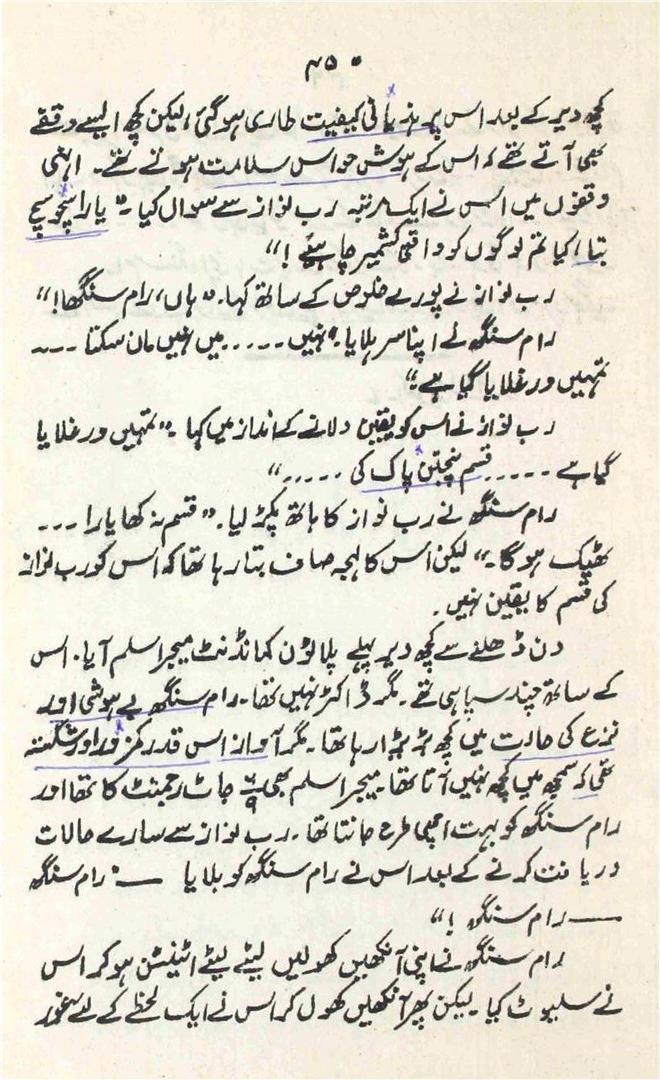 ۴۵۰
کچھ دیر کے بعد اس پر ہذیانی کیفیت طاری ہوگئی، لیکن کچھ ایسے وقفے
بھی آتے تھے کہ اس کے ہوش حواس سلامت ہوتے تھے۔ انہی
وقفوں میں اس نے ایک مرتبہ رب نواز سے سوال کیا۔ ”یارا سچو سچ
بتا، کیا تم لوگوں کو واقعی کشمیر چاہئے!“
رب نواز نے پورے خلوص کے ساتھ کہا۔ ”ہاں، رام سنگھا!“
رام سنگھ نے اپنا سر ہلایا۔ ”نہیں ..... میں نہیں مان سکتا ...
تمہیں ورغلایا گیا ہے۔“
رب نواز نے اس کو یقین دلانے کے انداز میں کہا۔ ”تمہیں ورغلایا
گیا ہے ..... قسم پنجتن پاک کی .....“
رام سنگھ نے رب نواز کا ہاتھ پکڑ لیا۔ ”قسم نہ کھا یارا ...
ٹھیک ہو گا۔“ لیکن اس کا لہجہ صاف بتا رہا تھا کہ اس کو رب نواز
کی قسم کا یقین نہیں۔
دن ڈھلنے سے کچھ دیر پہلے پلاٹون کمانڈنٹ میجر اسلم آیا۔ اس
کے ساتھ چند سپاہی تھے۔ مگر ڈاکٹر نہیں تھا۔ رام سنگھ بے ہوشی اور
نزع کی حالت میں کچھ بڑبڑا رہا تھا۔ مگر آواز اس قدر کمزور اور شکستہ
تھی کہ سمجھ میں کچھ نہیں آتا تھا۔ میجر اسلم بھی ۶/۹ جاٹ رجمنٹ کا تھا اور
رام سنگھ کو بہت اچھی طرح جانتا تھا۔ رب نواز سے سارے حالات
دریافت کرنے کے بعد اس نے رام سنگھ کو بلایا — ”رام سنگھ
— رام سنگھ !“
رام سنگھ نے اپنی آنکھیں کھولیں لیٹے لیٹے اٹینشن ہو کر اس
نے سلیوٹ کیا۔ لیکن پھر آنکھیں کھول کر اس نے ایک لحظے کے لئے غور